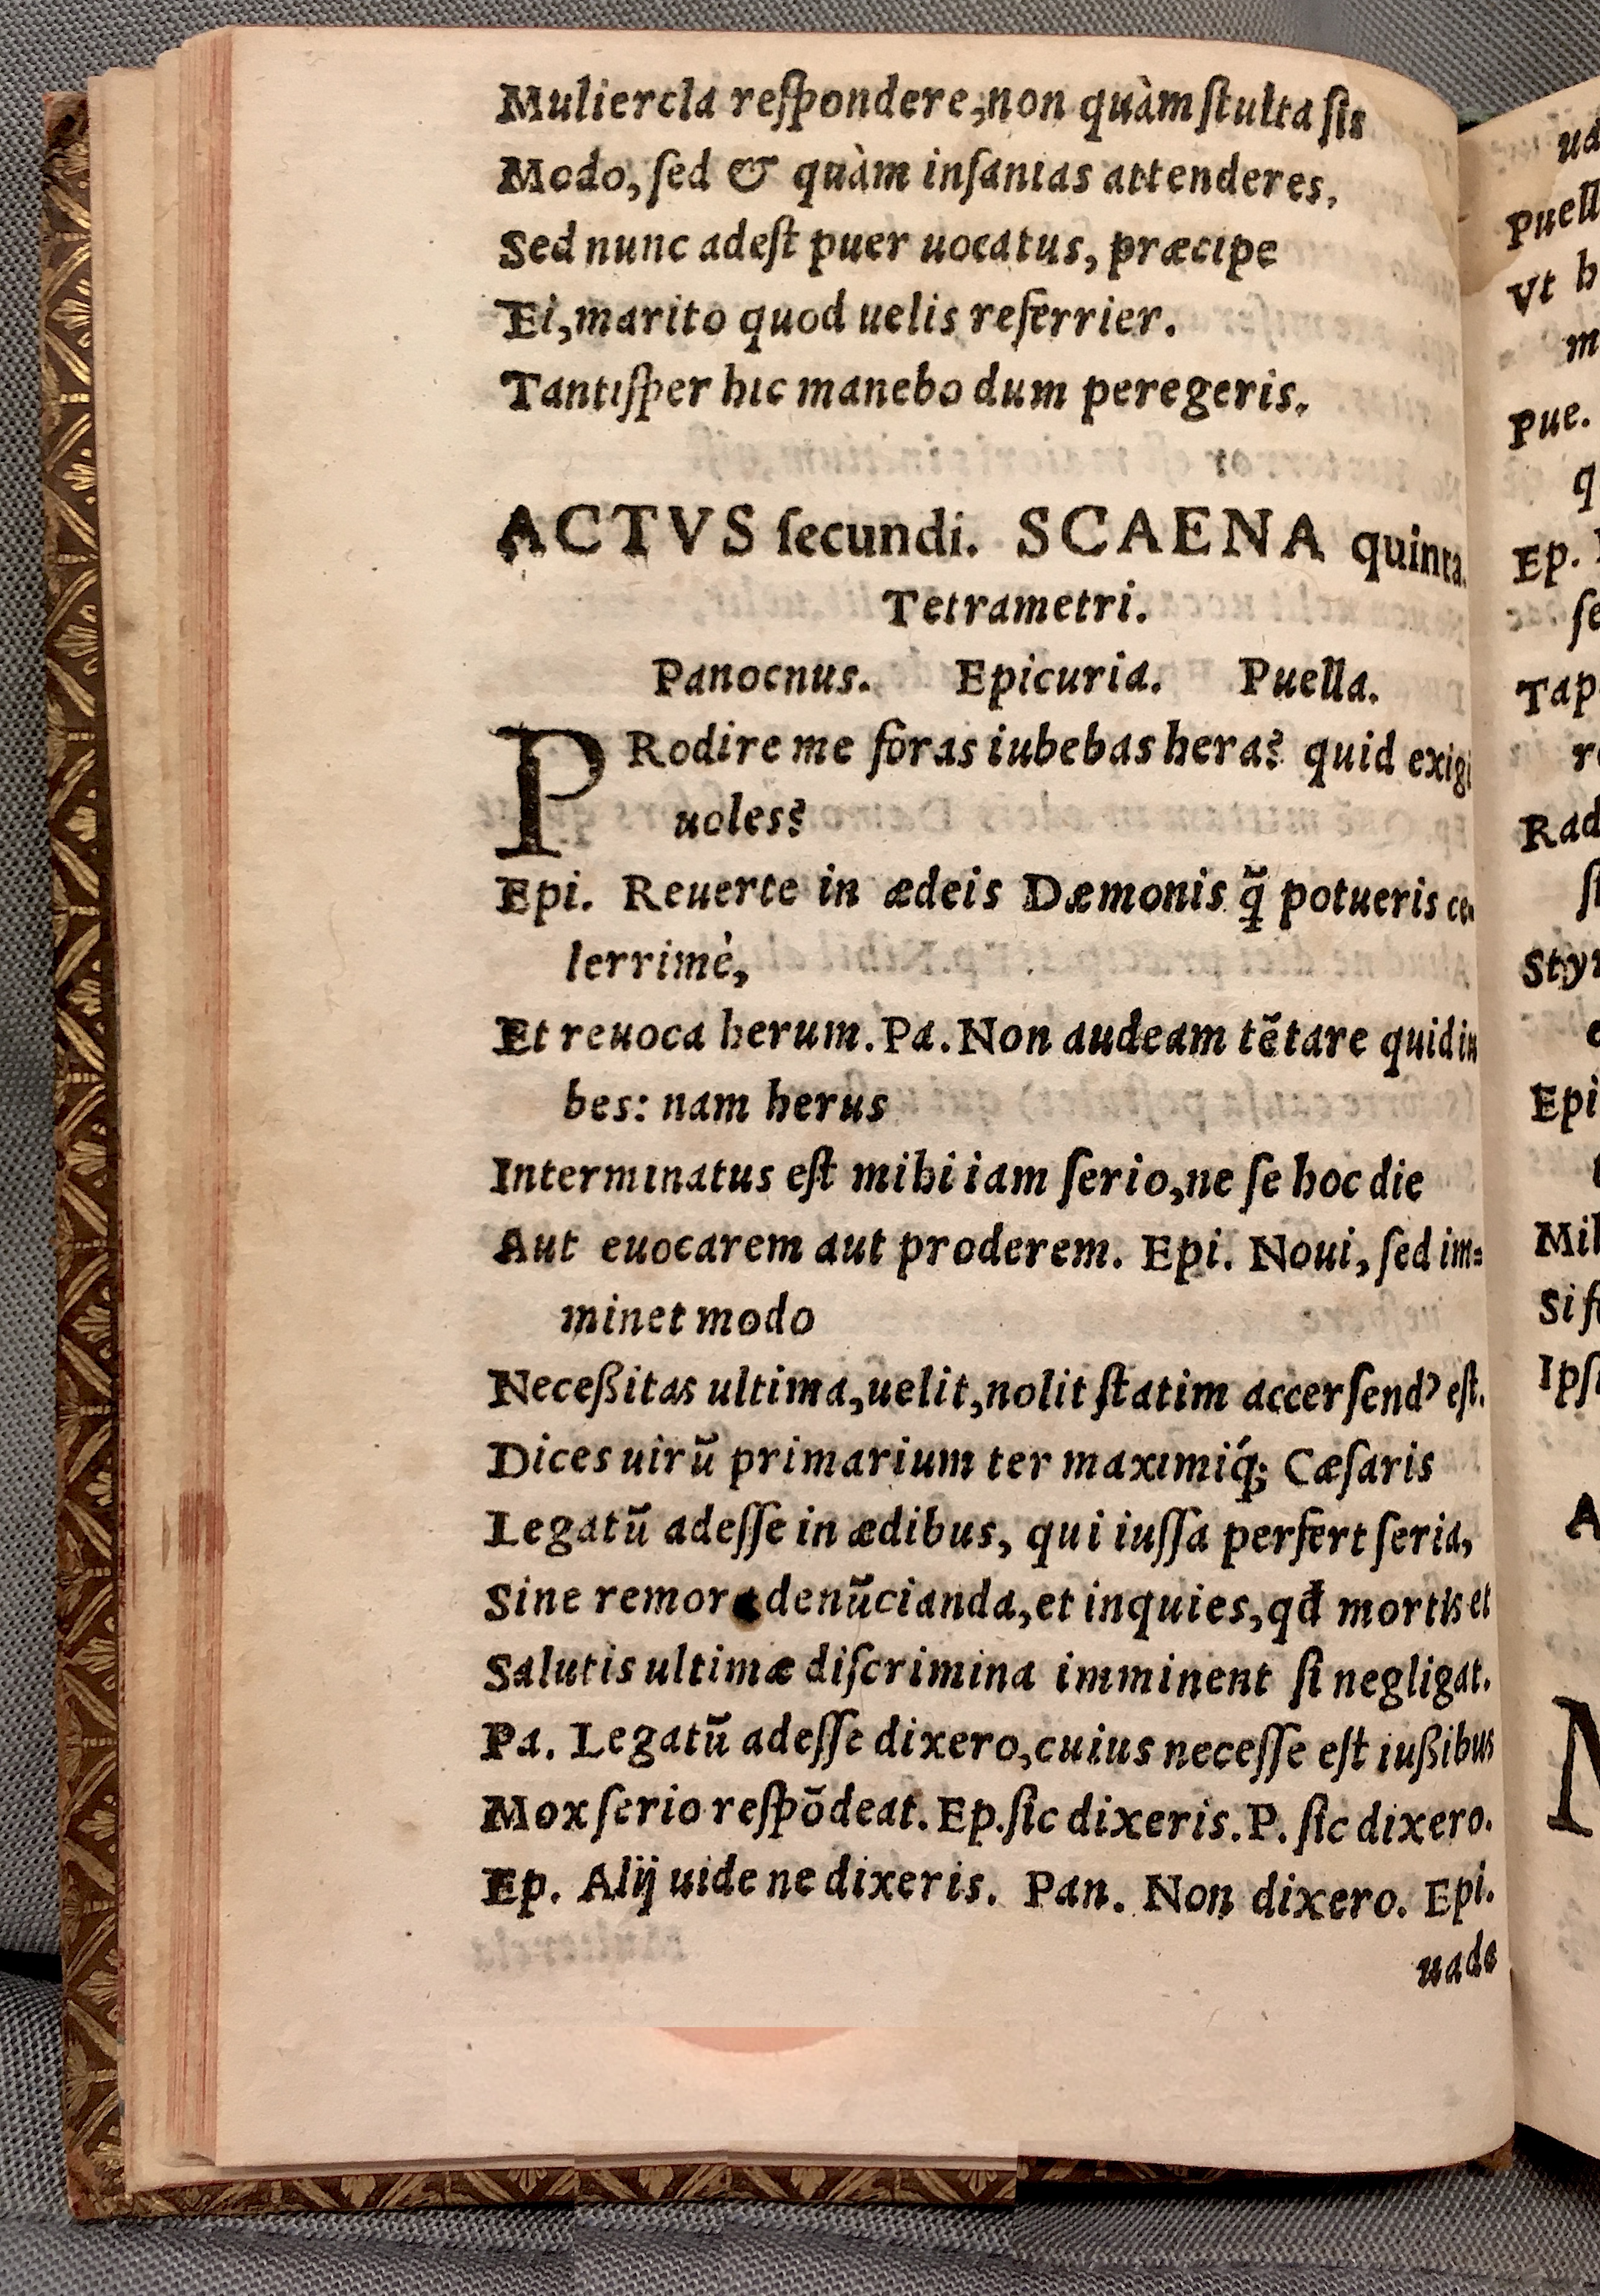 Muliercla reſpondere, non quàm ſtulta ſis
Modo, ſed & quàm inſanias attenderes.
Sed nunc adeſt puer uocatus, præcipe
Ei, marito quod uelis referrier.
Tantiſper hic manebo dum peregeris.
ACTVS ſecundi. SCAENA quinta.
Tetrametri.
Panocnus. Epicuria. Puella.
PRodire me foras iubebas hera? quid exigi
uoles?
Epi. Reuerte in ædeis Dæmonis q̃ potueris ce
lerrimè,
Et reuoca herum. Pa. Non audeam tẽtare quid iu
bes: nam herus
Interminatus eſt mihi iam ſerio, ne ſe hoc die
Aut euocarem aut proderem. Epi. Noui, ſed im=
minet modo
Neceßitas ultima, uelit, nolit ſtatim accerſendꝰ eſt.
Dices uirũ primarium ter maximiq́; Cæſaris
Legatũ adeſſe in ædibus, qui iuſſa perfert ſeria,
Sine remora denũcianda, et inquies, qđ mortis et
Salutis ultimæ diſcrimina imminent ſi negligat.
Pa. Legatũ adeſſe dixero, cuius neceſſe eſt iußibus
Mox ſerio reſpõdeat. Ep. ſic dixeris. P. ſic dixero.
Ep. Alij uide ne dixeris. Pan. Non dixero. Epi.
uade
Puell
Vt h
m
Pue.
q
Ep.
ſe
Tap
r
Rad
ſi
Sty
Epi
t
Mil
Si f
Ipſ
A